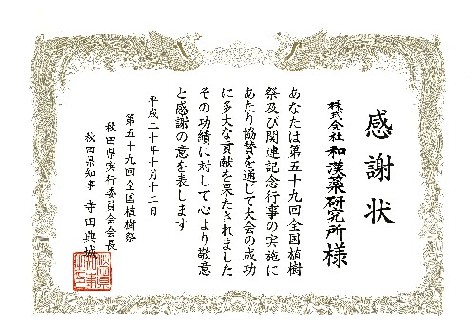 感謝状
株式会社 和漢薬研究所 様
あなたは第五十九回全国植樹
祭及び関連記念行事の実施に
あたり協賛を通じて大会の成功
に多大な貢献を果たされました
その功績に対して心より敬意
と感謝の意を表します
平成二十年十月十二日
第五十九回全国植樹祭
秋田県実行委員会会長
秋田県知事 寺田典城